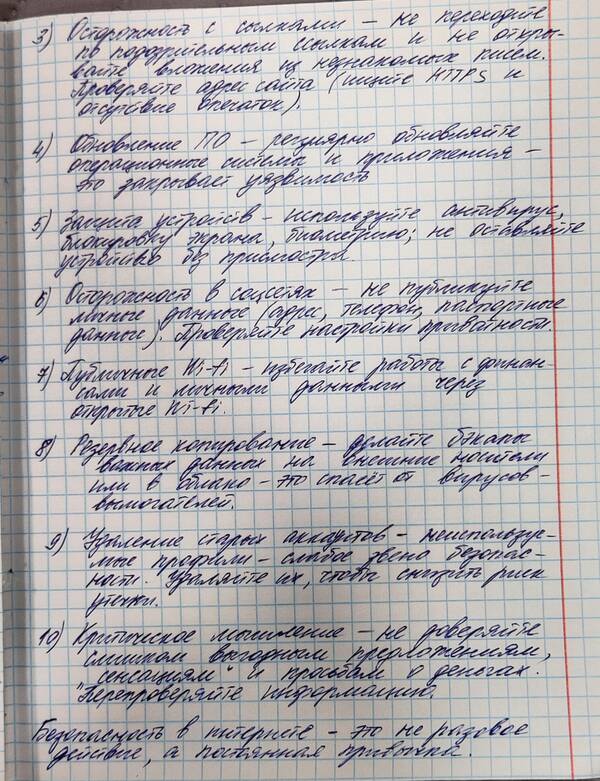 3) Осторожность с ссылками – не переходите
по подозрительным ссылкам и не откры-
вайте вложения из незнакомых писем.
Проверяйте адрес сайта (ищите HTTPS и
отсутствие опечаток).
4) Обновление ПО – регулярно обновляйте
операционные системы и приложения –
это закрывает уязвимость
5) Защита устройств – используйте антивирус,
блокировку экрана, биометрию; не оставляйте
устройство без присмотра.
6) Осторожность в соцсетях – не публикуйте
личные данные (адрес, телефон, паспортные
данные). Проверяйте настройки приватности.
7) Публичные Wi-Fi – избегайте работы с финан-
сами и личными данными через
открытые Wi-Fi.
8) Резервное копирование – делайте бэкапы
важных данных на внешние носители
или в облако – это спасёт от вирусов –
вымогателей.
9) Удаление старых аккаунтов – неиспользуе-
мые профили – слабое звено безопас-
ности. Удаляйте их, чтобы снизить риск
утечки.
10) Критическое мышление – не доверяйте
слишком выгодным предложениям,
"сенсациям" и просьбам о деньгах.
Перепроверяйте информацию
Безопасность в интернете – это не разовое
действие, а постоянная привычка.